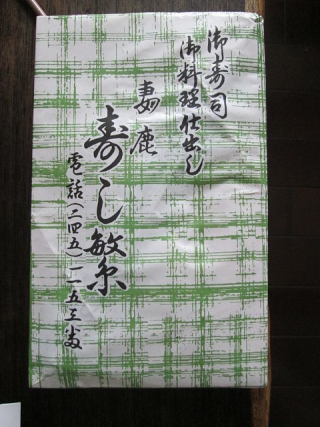 御寿司
御料理仕出し
妻鹿
寿し敏
電話(二四五)一一五三番